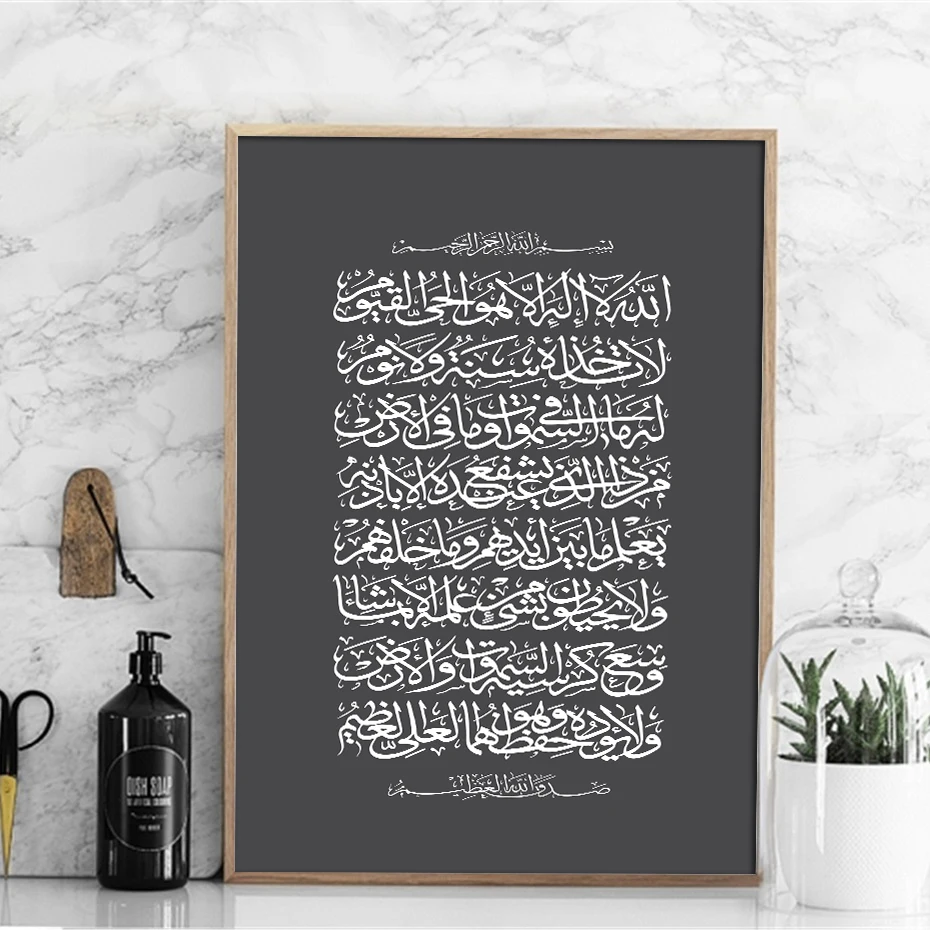 بسم الله الرحمن الرحيم
الله لا إله إلا هو الحي القيوم
لا تأخذه سنة ولا نوم
له ما في السموات وما في الأرض
من ذا الذي يشفع عنده إلا بإذنه
يعلم ما بين أيديهم وما خلفهم
ولا يحيطون بشيء من علمه إلا بما شاء
وسع كرسيه السموات والأرض
ولا يؤده حفظهما وهو العلي العظيم
صدق الله العظيم
DISH SOAP